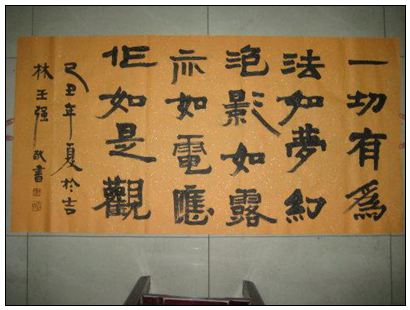 一切有為
法如夢幻
泡影如露
亦如電應
作如是觀
己丑年夏於吉
林王强敬書